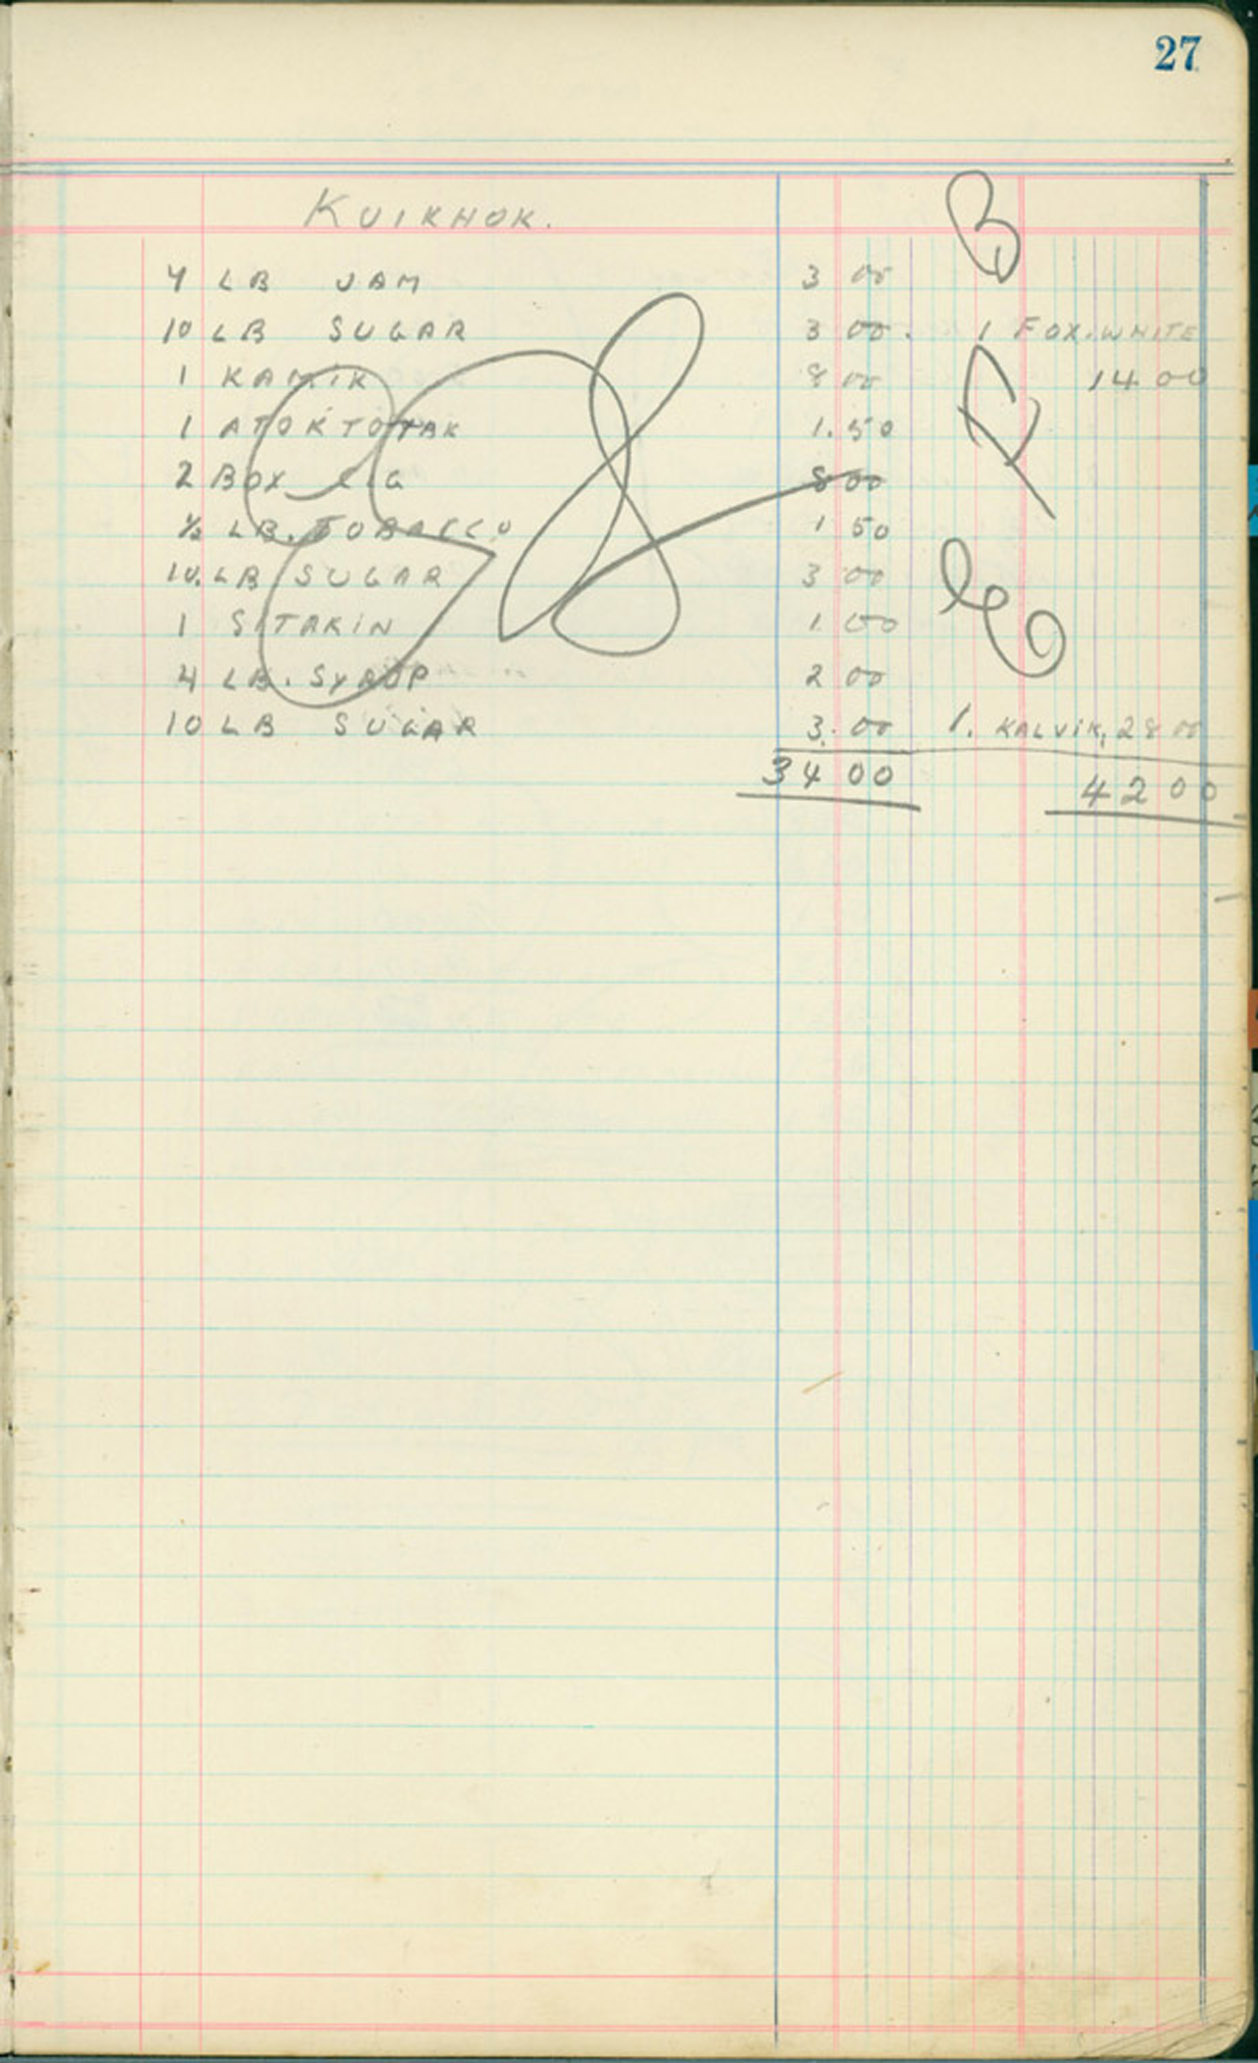 27
KUIKHOK.
4 LB JAM 3 00
10 LB SUGAR 3 00. 1 FOX. WHITE
1 KAMIK 8 00 14 00
1 ATOKTOTAK 1.50
2 BOX CIG 8 00
½ LB. TOBACCO 1 50
10. LB SUGAR 3 00
1 SITAKIN 1 00
4 LB. SYROP 2 00
10 LB SUGAR 3.00 1. KALVIK, 28 00
34 00 42 00